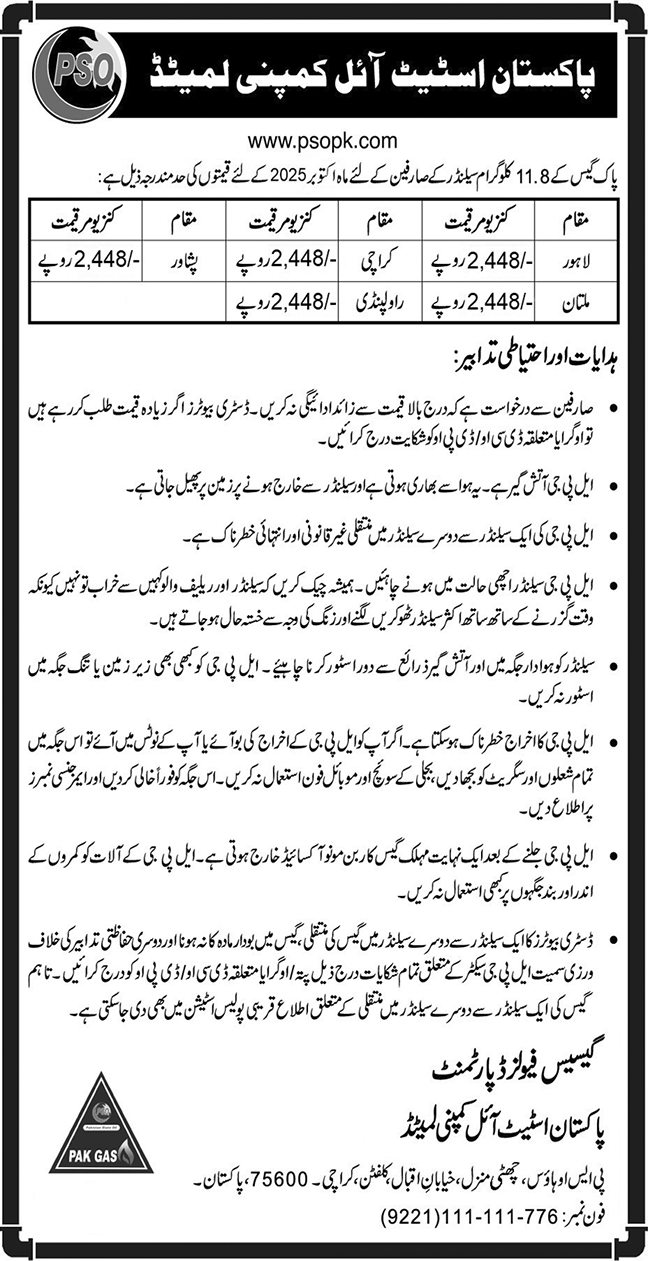 PSO
پاکستان اسٹیٹ آئل کمپنی لمیٹڈ
www.psopk.com
پاک گیس کے 11.8 کلوگرام سیلنڈر کے صارفین کے لئے ماہ اکتوبر 2025 کے لئے قیمتوں کی حد مندرجہ ذیل ہے:
مقام کنزیومر قیمت مقام کنزیومر قیمت مقام کنزیومر قیمت
لاہور 2,448/- روپے کراچی 2,448/- روپے پشاور 2,448/- روپے
ملتان 2,448/- روپے راولپنڈی 2,448/- روپے
ہدایات اور احتیاطی تدابیر:
• صارفین سے درخواست ہے کہ درج بالا قیمت سے زائد ادائیگی نہ کریں۔ ڈسٹری بیوٹرز اگر زیادہ قیمت طلب کر رہے ہیں
تو اوگرا یا متعلقہ ڈی سی او/ڈی پی او کو شکایت درج کرائیں۔
• ایل پی جی آتش گیر ہے۔ یہ ہوا سے بھاری ہوتی ہے اور سیلنڈر سے خارج ہونے پر زمین پر پھیل جاتی ہے۔
• ایل پی جی کی ایک سیلنڈر سے دوسرے سیلنڈر میں منتقلی غیر قانونی اور انتہائی خطرناک ہے۔
• ایل پی جی سیلنڈر اچھی حالت میں ہونے چاہئیں۔ ہمیشہ چیک کریں کہ سیلنڈر اور ریلیف والو کہیں سے خراب تو نہیں کیونکہ
وقت گزرنے کے ساتھ ساتھ اکثر سیلنڈر ٹھوکریں لگنے اور زنگ کی وجہ سے خستہ حال ہو جاتے ہیں۔
• سیلنڈر کو ہوادار جگہ میں اور آتش گیر ذرائع سے دور اسٹور کرنا چاہیئے۔ ایل پی جی کو کبھی بھی زیر زمین یا تنگ جگہ میں
اسٹور نہ کریں۔
• ایل پی جی کا اخراج خطرناک ہو سکتا ہے۔ اگر آپ کو ایل پی جی کے اخراج کی بو آئے یا آپ کے نوٹس میں آئے تو اس جگہ میں
تمام شعلوں اور سگریٹ کو بجھا دیں، بجلی کے سوئچ اور موبائل فون استعمال نہ کریں۔ اس جگہ کو فوراً خالی کر دیں اور ایمرجنسی نمبرز
پر اطلاع دیں۔
• ایل پی جی جلنے کے بعد ایک نہایت مہلک گیس کاربن مونو آکسائیڈ خارج ہوتی ہے۔ ایل پی جی کے آلات کو کمروں کے
اندر اور بند جگہوں پر کبھی استعمال نہ کریں۔
• ڈسٹری بیوٹرز کا ایک سیلنڈر سے دوسرے سیلنڈر میں گیس کی منتقلی، گیس میں بودار مادہ کا نہ ہونا اور دوسری حفاظتی تدابیر کی خلاف
ورزی سمیت ایل پی جی سیکٹر کے متعلق تمام شکایات درج ذیل پتہ/اوگرا یا متعلقہ ڈی سی او/ڈی پی او کو درج کرائیں۔ تاہم
گیس کی ایک سیلنڈر سے دوسرے سیلنڈر میں منتقلی کے متعلق اطلاع قریبی پولیس اسٹیشن میں بھی دی جا سکتی ہے۔
گیسیس فیولز ڈپارٹمنٹ
پاکستان اسٹیٹ آئل کمپنی لمیٹڈ
پی ایس او ہاؤس، چھٹی منزل، خیابانِ اقبال، کلفٹن، کراچی۔ 75600، پاکستان۔
فون نمبر: 111-111-776(9221)
PSO
Pakistan State Oil
PAK GAS